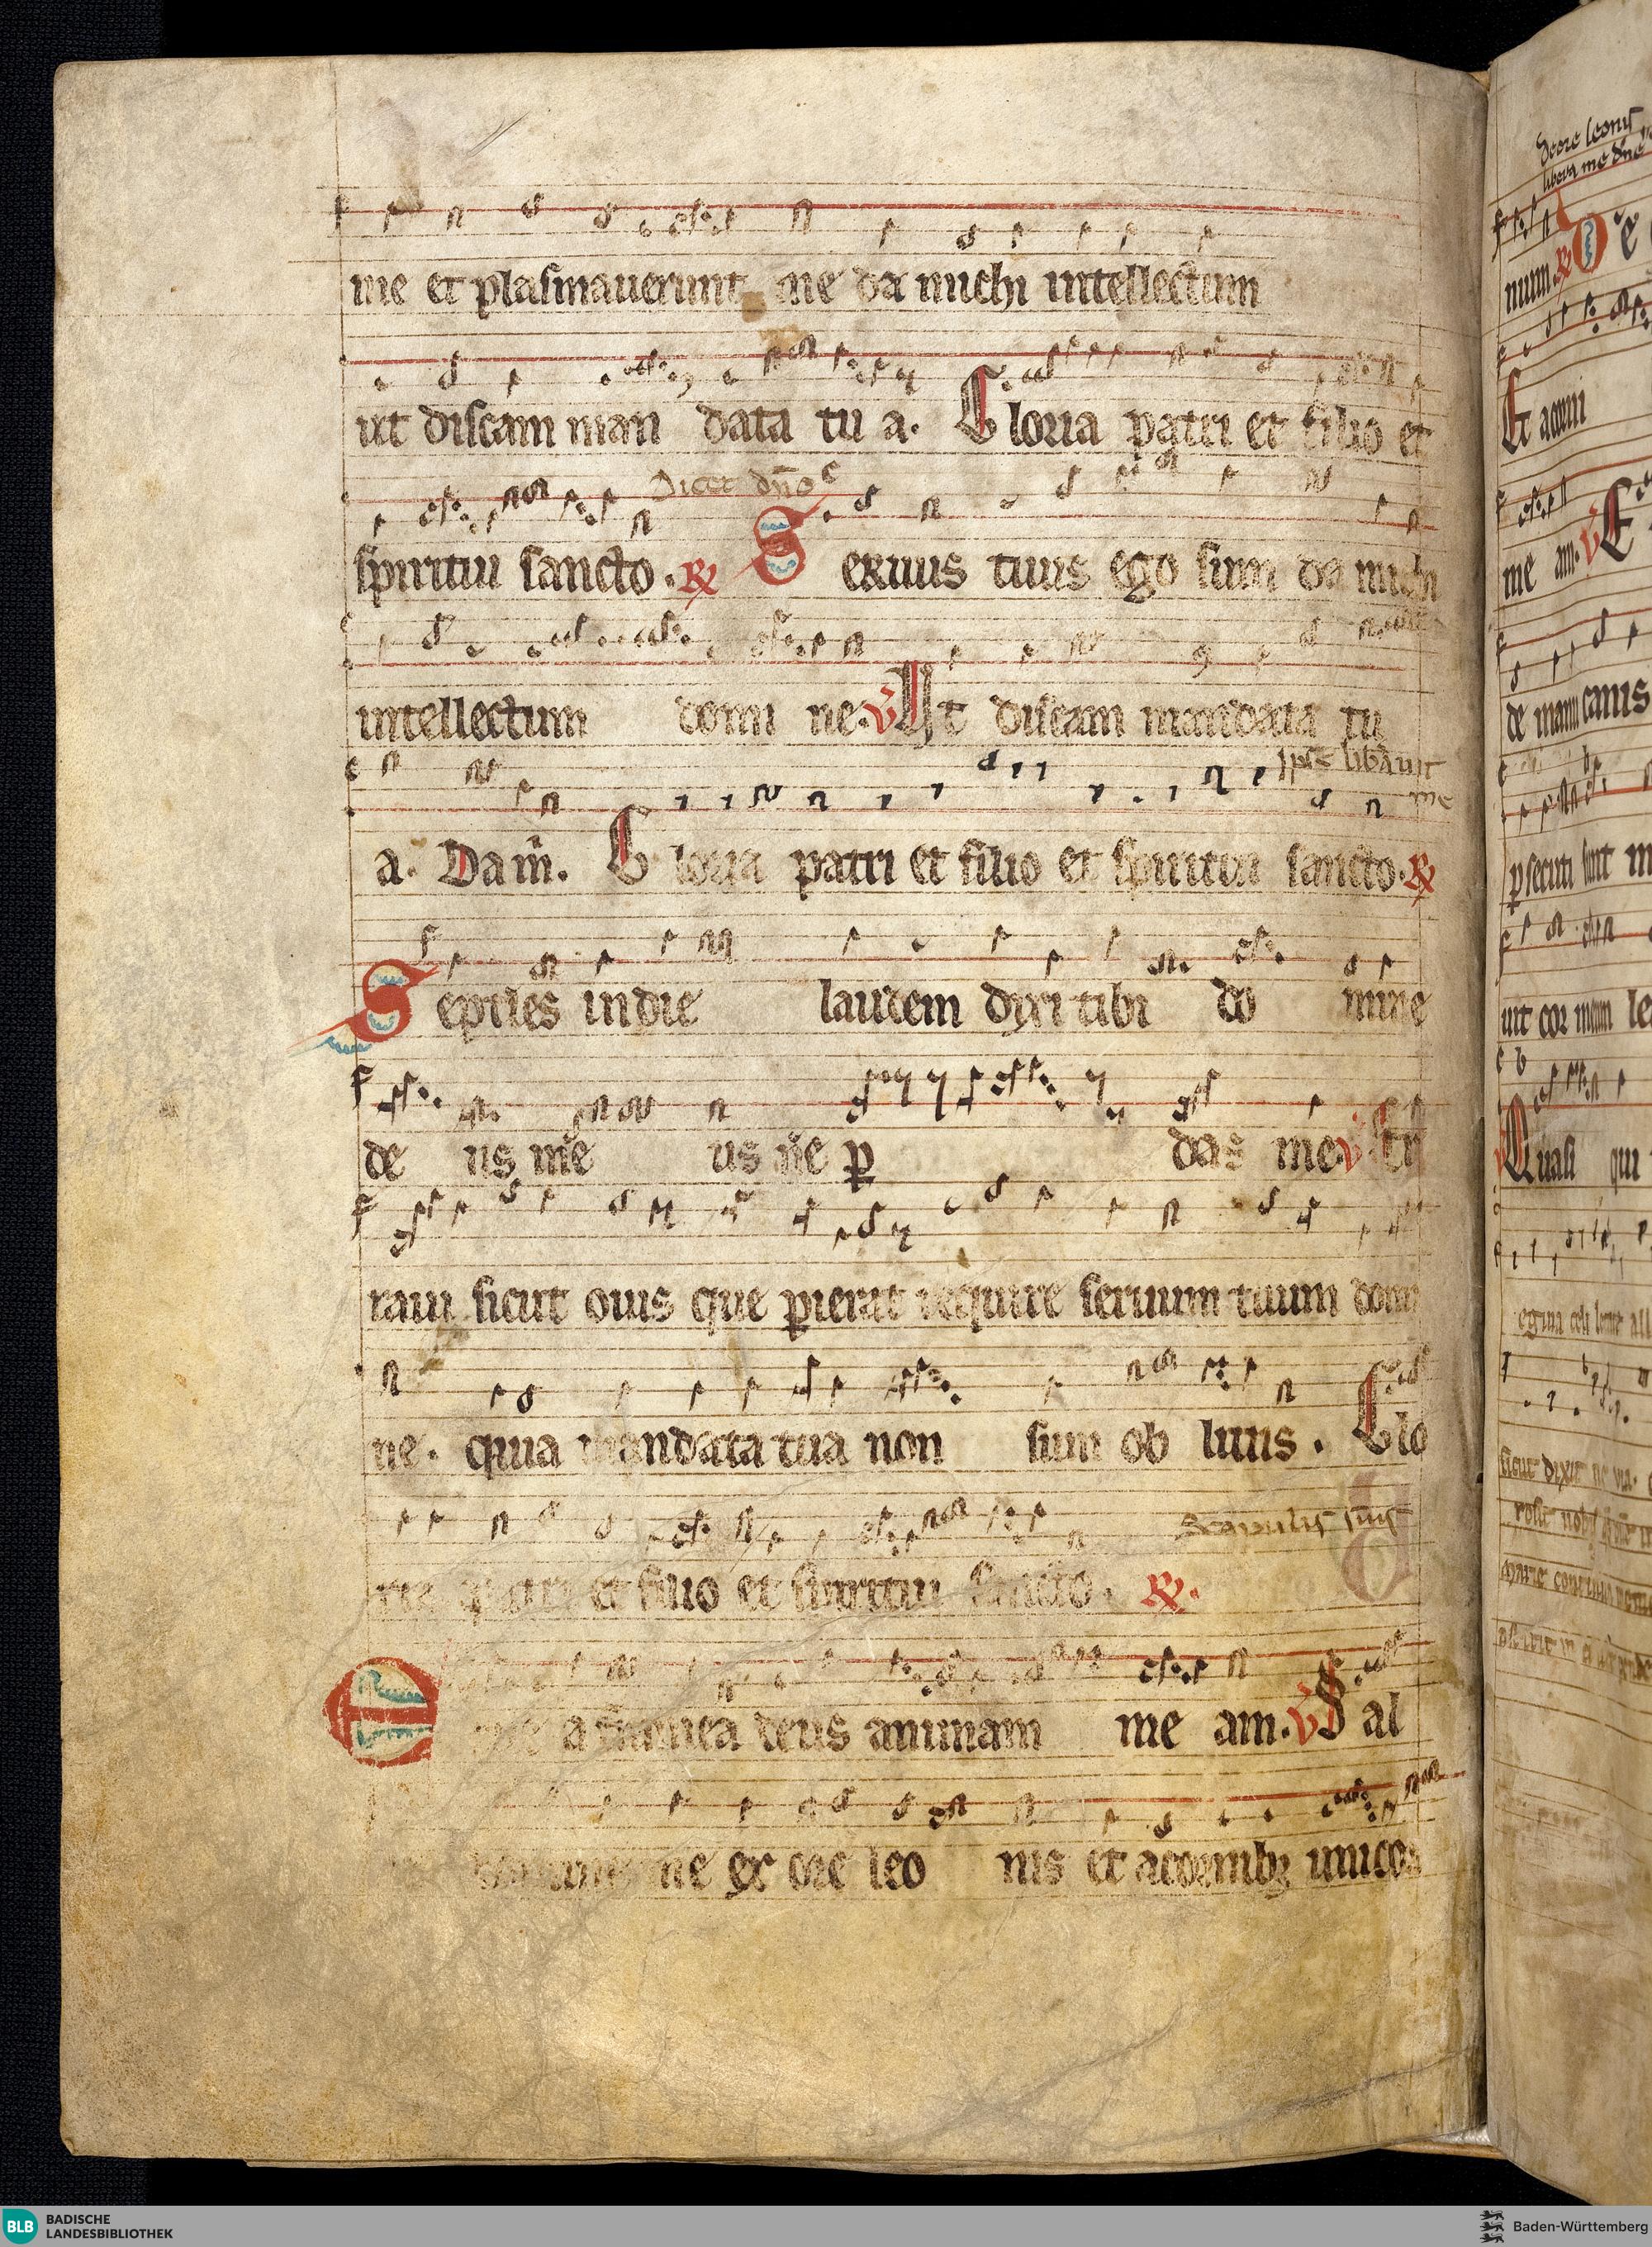 me et plasmauerunt me da michi intellectum
ut discam man data tu a. Gloria patri et filio et
Dicet dño
spiritui sancto. ℟ S eruus tuus ego sum da michi
intellectum domi ne. V Ut discam mandata tu
Ip̃e lib̃auit me
a. Da m̃. G loria patri et filio et spiritui sancto. ℟
S epties in die laudem dixi tibi do mine
de us me us ne p das me. V Er
raui sicut ouis que pierat require seruum tuum domi
ne. quia mandata tua non sum ob litus. Glo
Scapulis suis
ria patri et filio et spiritui sancto. ℟.
E a framea deus animam me am. V S al
me ex ore leo nis et acornibꝫ unicor
de ore leonis
libera me dñe
num ℟ D e
Et acorni
me am. V E
de manu canis
psecuti sunt m
uit cor meum le
V Quasi qui
egina celi letare all
sicut dixit
BLB BADISCHE
LANDESBIBLIOTHEK
Baden-Württemberg